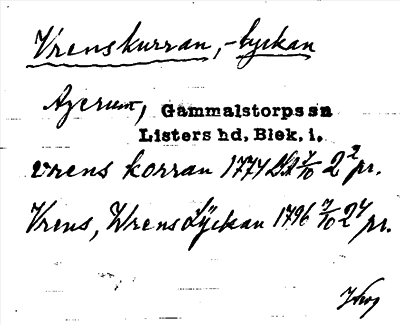 Vrenskurran, -lyckan
Agerum, Gammalstorps sn
Listers hd, Blek. l.
vrens korran 1774 7/10 2² pr.
Vrens, Wrens Lÿckan 1796 7/10 2⁴ pr.